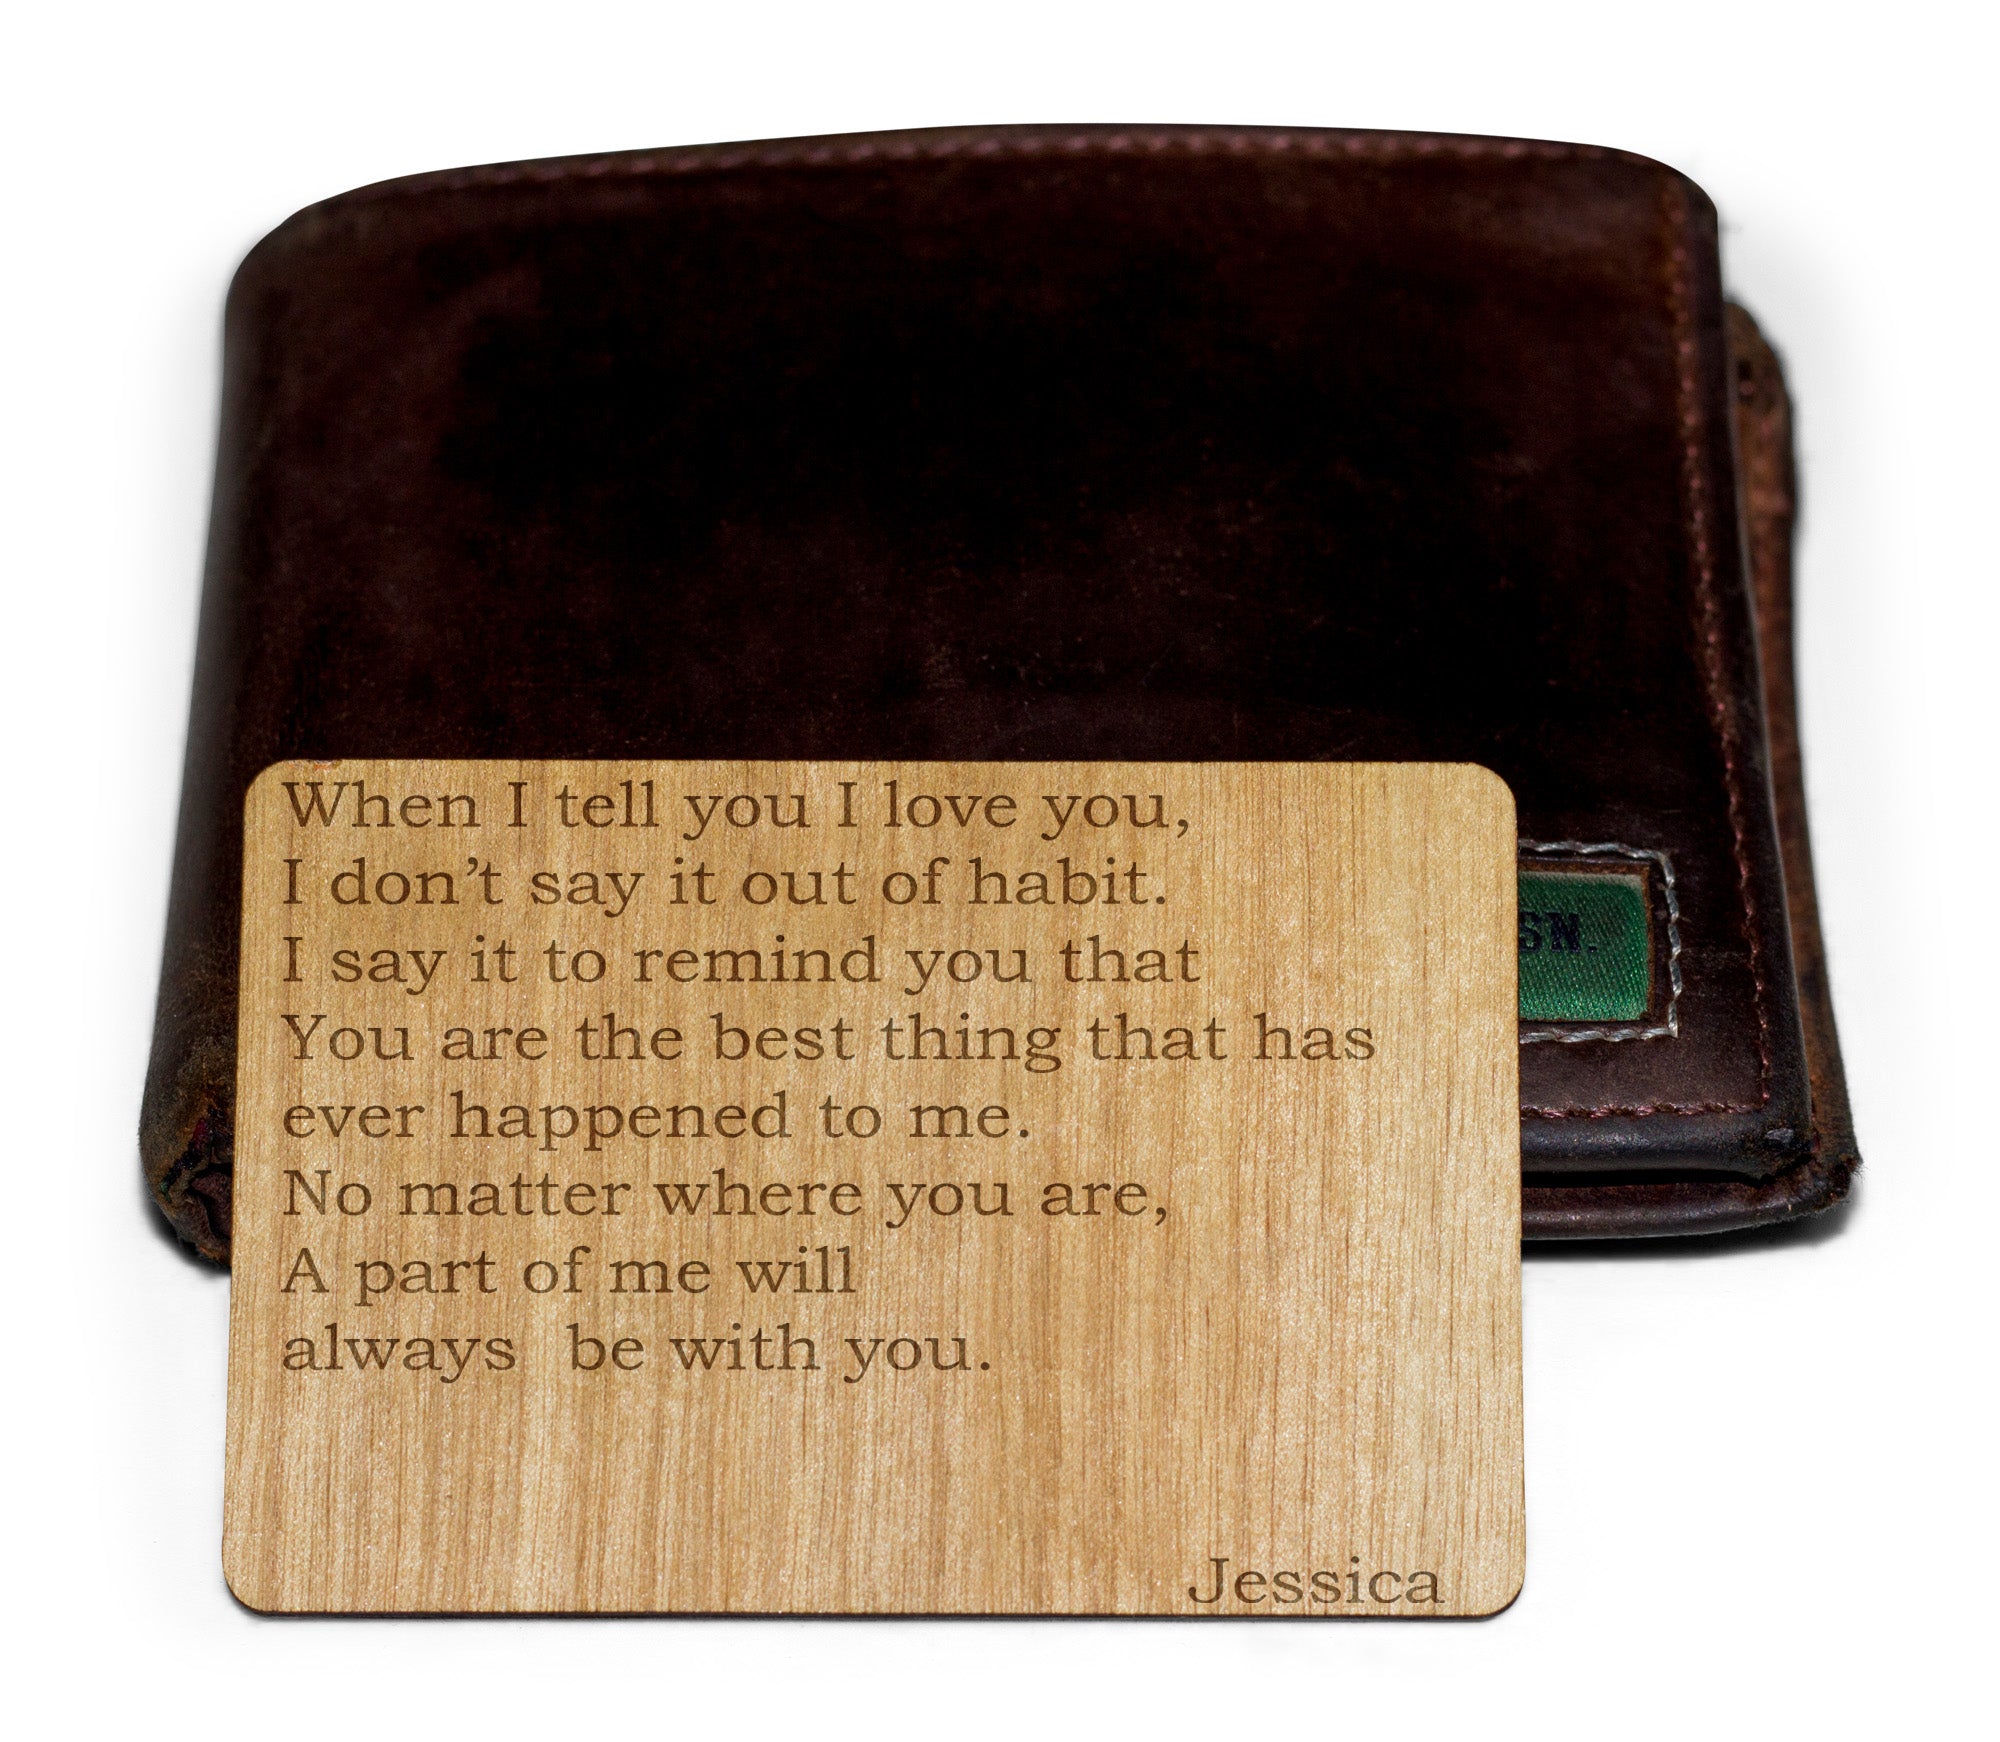 When I tell you I love you,
I don’t say it out of habit.
I say it to remind you that
You are the best thing that has
ever happened to me.
No matter where you are,
A part of me will
always  be with you.
Jessica
SN.